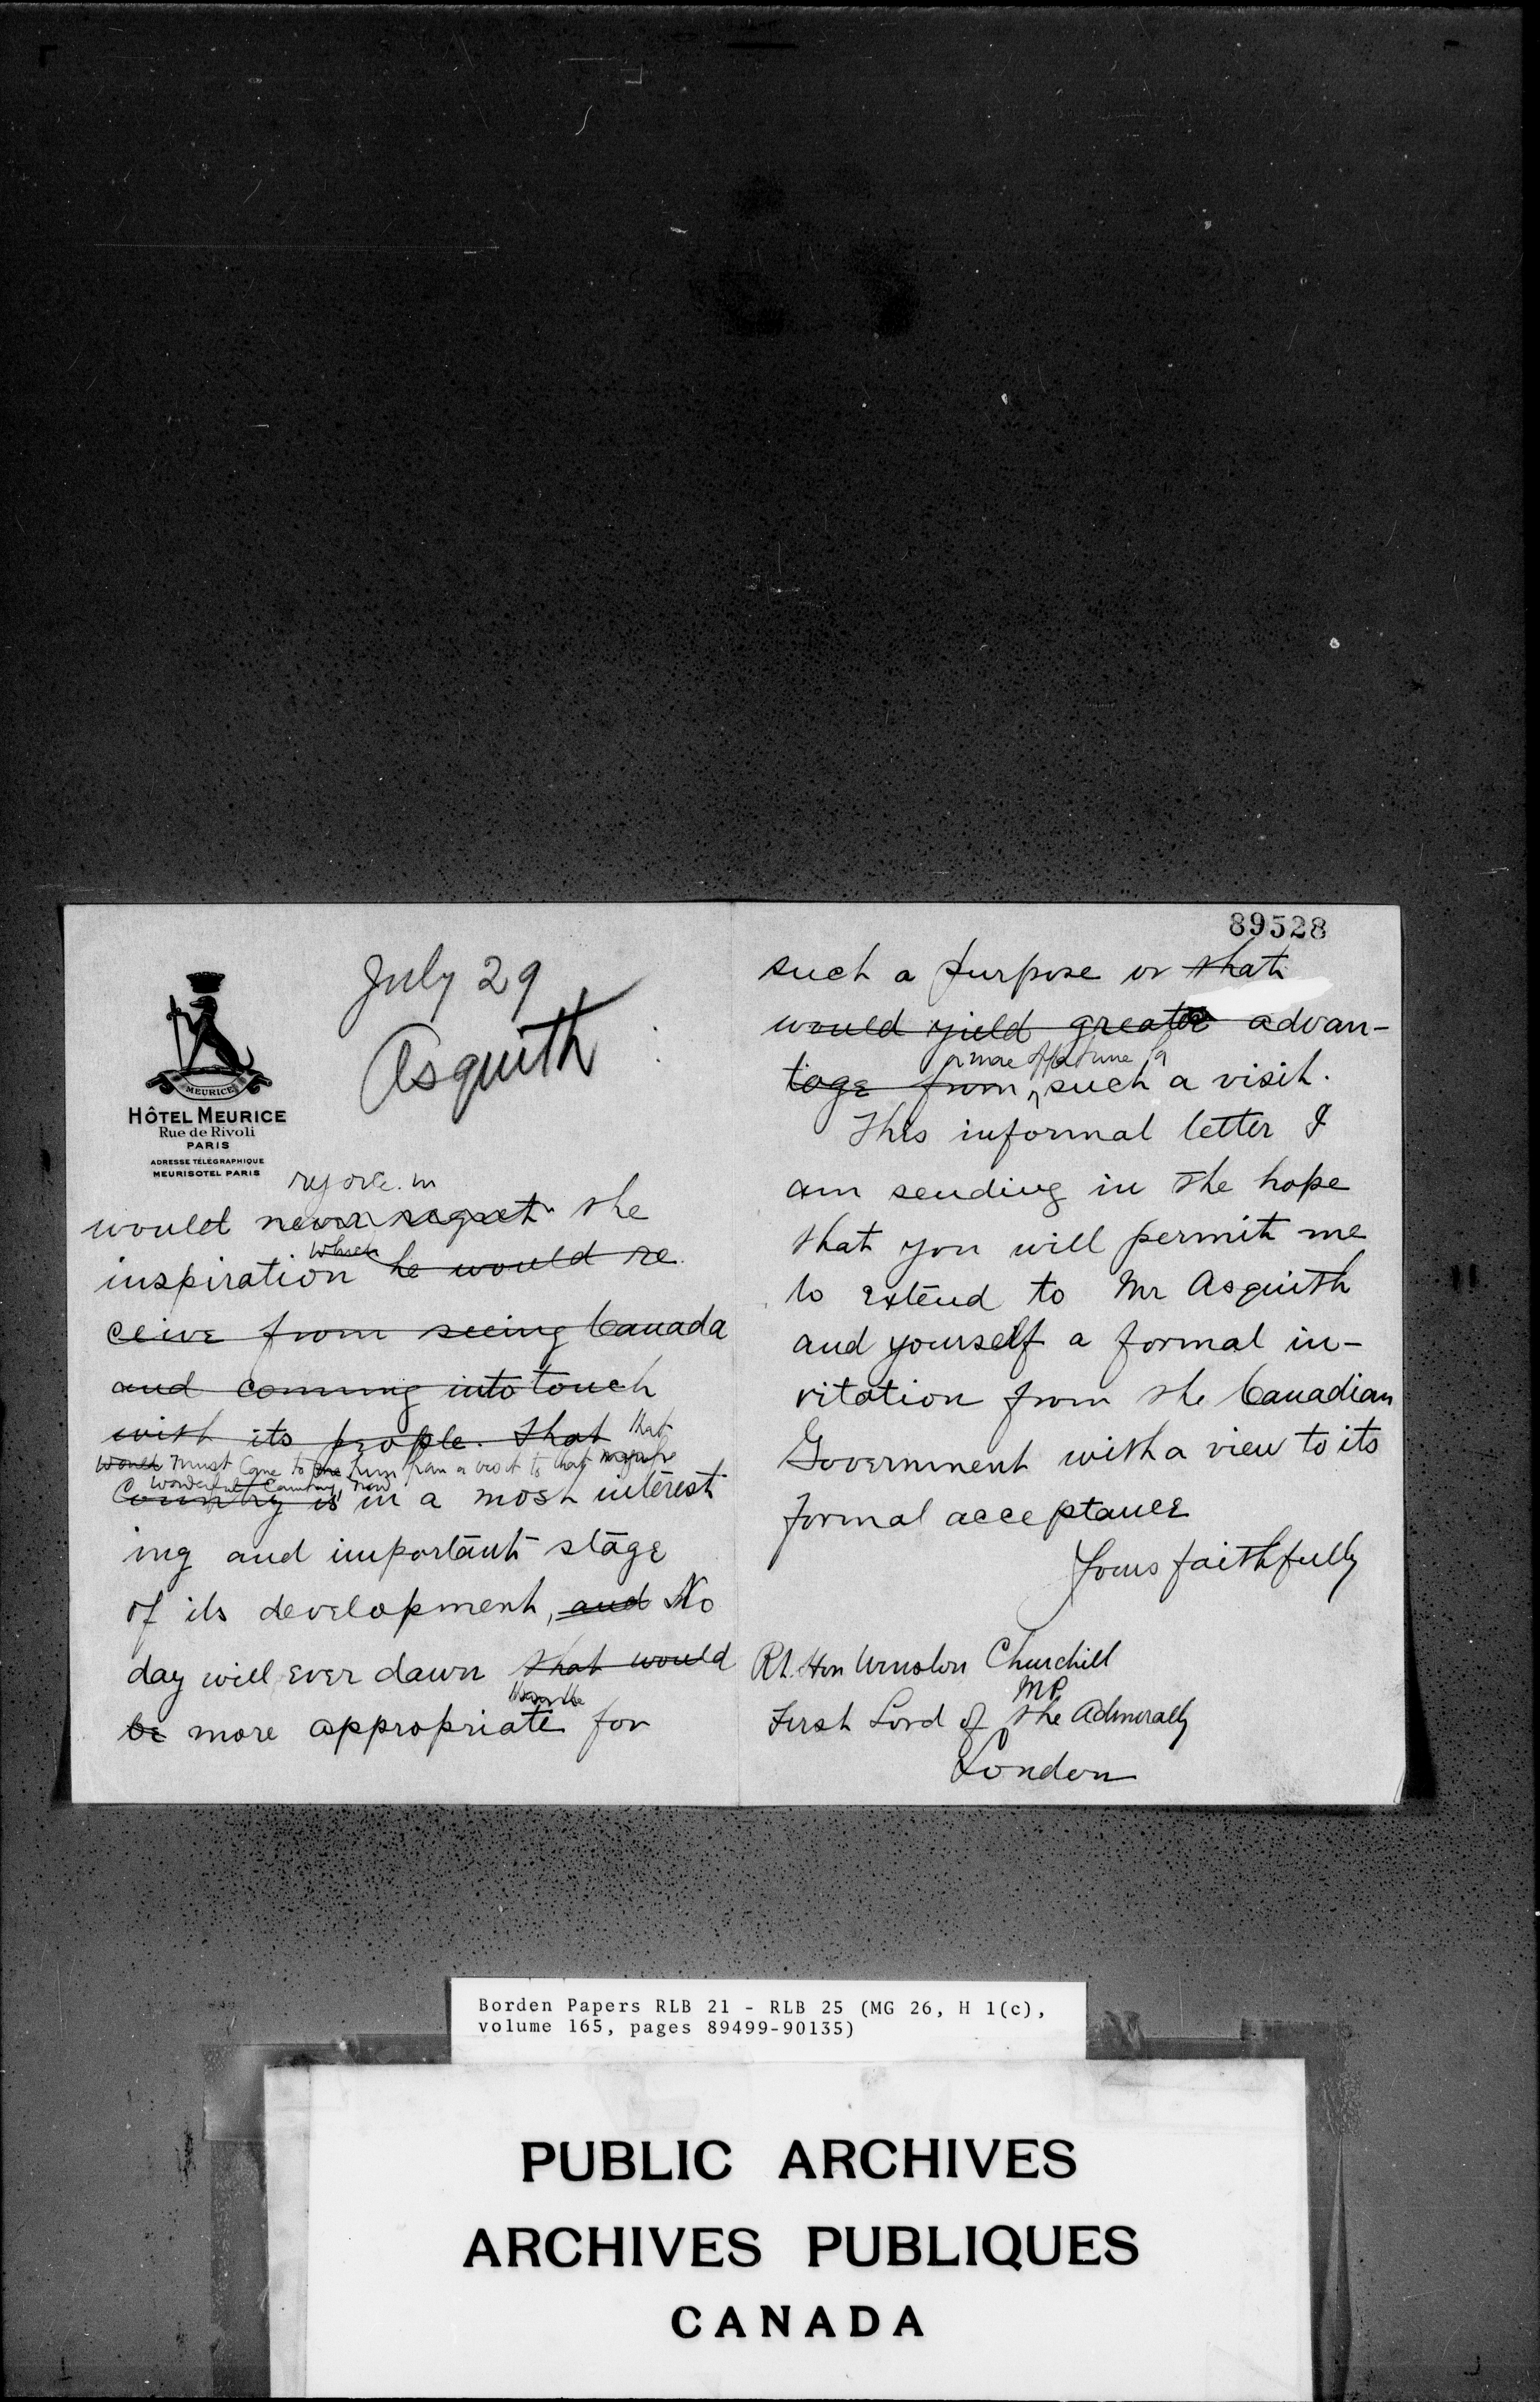 89528
July 29
Asquith
MEURICE
HÔTEL MEURICE
Rue de Rivoli
PARIS
ADRESSE TÉLÉGRAPHIQUE
MEURISOTEL PARIS
rejoice in
would never regret the
which
inspiration he would re
ceive from seeing Canada
and coming into touch
with its people. That that
would must come to him from a visit to that
wonderful Country, now
Country is in a most interest
ing and important stage
of its development, and No
day will ever dawn that would
be more appropriate for
such a purpose or that
would yield greater advan-
a more opportune for
tage from such a visit.
This informal letter I
am sending in the hope
that you will permit me
to extend to Mr Asquith
and yourself a formal in-
vitation from the Canadian
Government with a view to its
formal acceptance
Yours faithfully
Rt. Hon Winston Churchill
MP
First Lord of the Admiralty
London
Borden Papers RLB 21 - RLB 25 (MG 26, H 1(c),
volume 165, pages 89499-90135)
PUBLIC ARCHIVES
ARCHIVES PUBLIQUES
CANADA